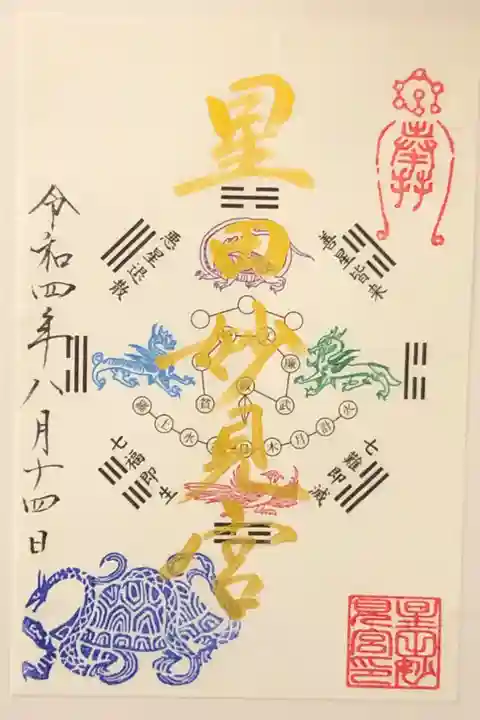 奉拝
善星皆来
悪星退散
星田妙見宮
七難即滅
七福即生
廉
武
土
水
日
木
月
計
火
令和四年八月十四日
星田妙見宮印